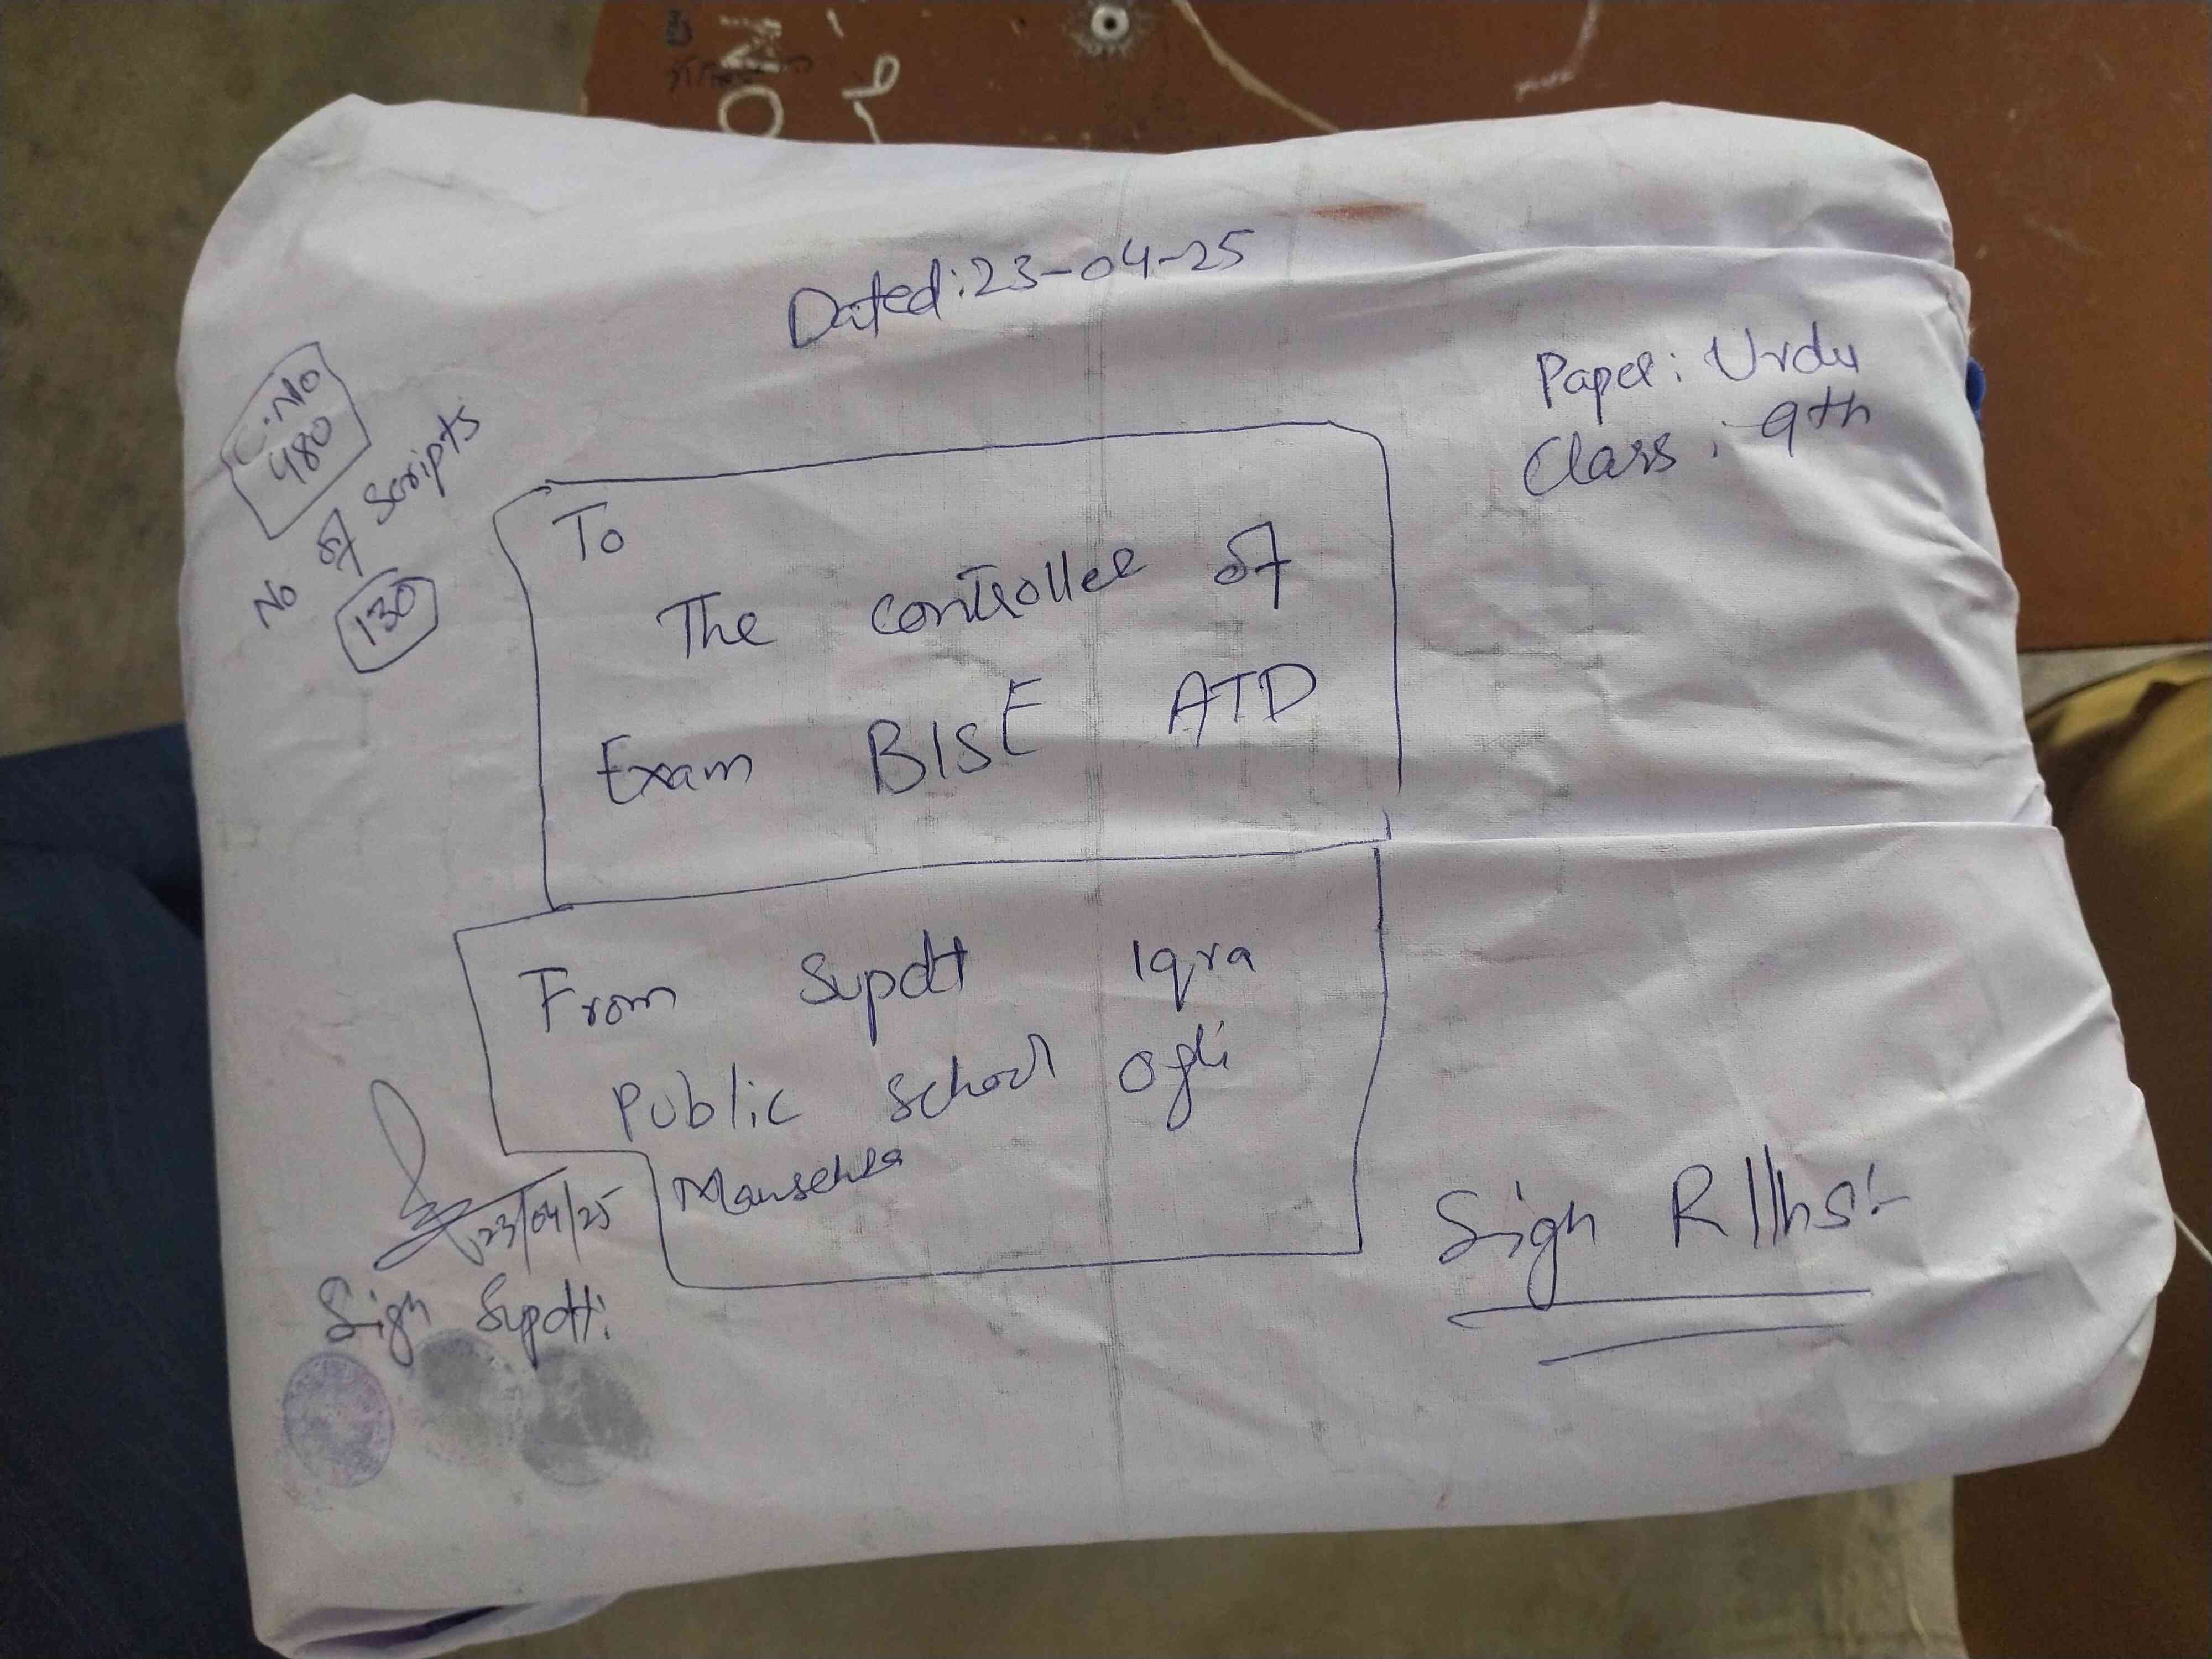 Dated: 23-04-25
Paper: Urdu
Class: 9th
C.No
480
No of Scripts
130
To
The controller of
Exam BISE ATD
From Supdtt Iqra
Public School Ogli
Mansehra
23/04/25
Sign Supdtt:
Sign R